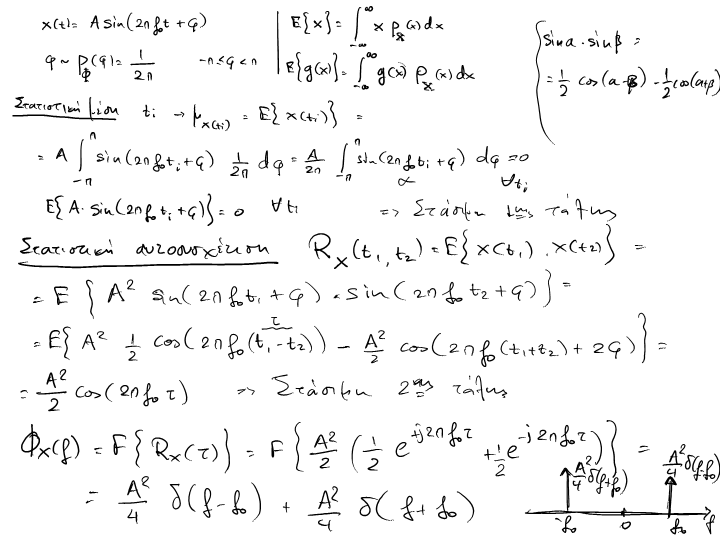 x(t) = A sin(2π f₀t + φ)
φ ~ p_Φ(φ) = 1/2π   -π ≤ φ < π
E{x} = ∫_{-∞}^{∞} x p_X(x) dx
E{g(x)} = ∫_{-∞}^{∞} g(x) p_X(x) dx
sin a · sin β =
= 1/2 cos(a-β) - 1/2 cos(a+β)
Στατιστική μέση   t_i → μ_{x(t_i)} = E{x(t_i)} =
= A ∫_{-π}^{π} sin(2π f₀ t_i + φ) 1/2π dφ = A/2π ∫_{-π}^{π} sin(2π f₀ t_i + φ) dφ = 0 ∀t_i
E{A · sin(2π f₀ t_i + φ)} = 0   ∀t_i   => Στάσιμη 1ης τάξης
Στατιστική αυτοσυσχέτιση   R_X(t₁, t₂) = E{x(t₁) · x(t₂)} =
= E{A² sin(2π f₀ t₁ + φ) · sin(2π f₀ t₂ + φ)} =
τ
= E{A² 1/2 cos(2π f₀(t₁ - t₂)) - A²/2 cos(2π f₀(t₁+t₂) + 2φ)} =
= A²/2 cos(2π f₀ τ)   => Στάσιμη 2ης τάξης
Φ_X(f) = F{R_X(τ)} = F{A²/2 (1/2 e^{+j2π f₀τ} + 1/2 e^{-j2π f₀τ})} =
= A²/4 δ(f - f₀) + A²/4 δ(f + f₀)
A²/4 δ(f+f₀)   A²/4 δ(f-f₀)
-f₀   0   f₀   f